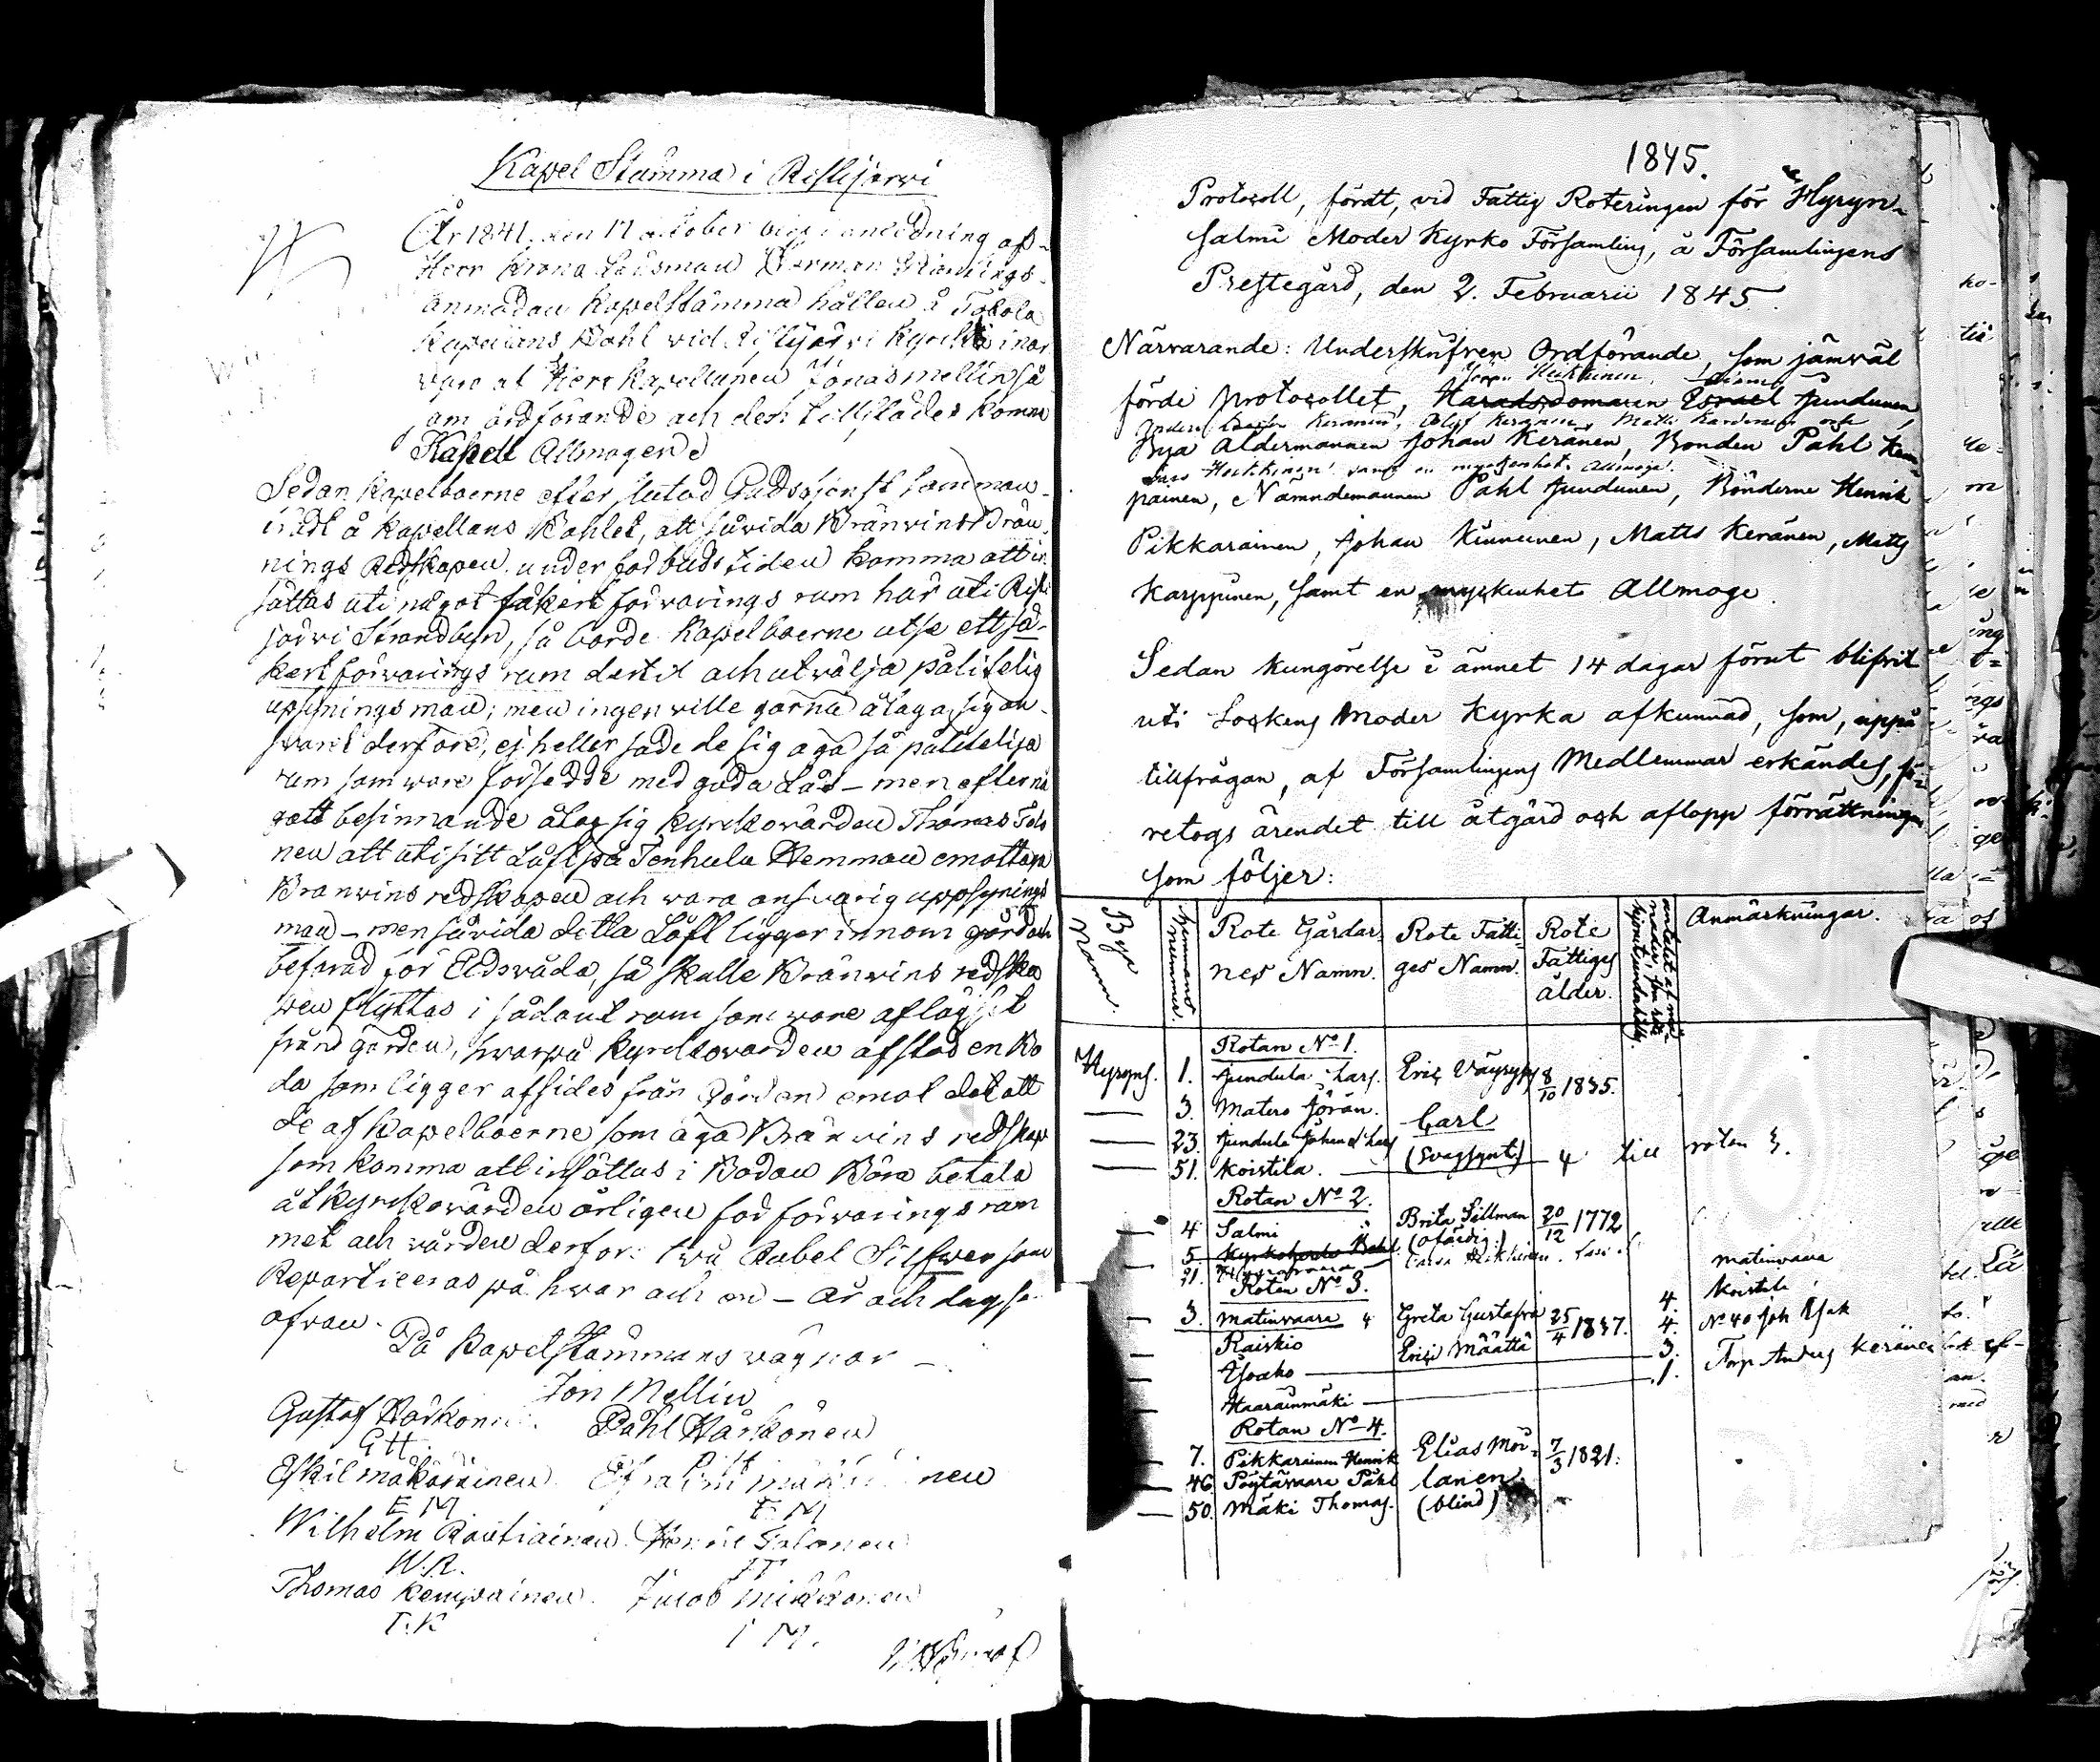 Kapel Stämma i Ristijerwi
År 1841. den 17 october blef i anledning af
Herr Krono Länsman Herman
anmodan Kapelstämma hållen å Tolola
Kapellans Bohl vid Ristijärvi Kyrcka i när
varo af Herr Kapellanen Jonas Mellin så
som ordförande och dess tillstädes komne
Kapell Allmogen
Sedan Kapelboerne efter slutad Gudstjenst samman
trädt å Kapellans Bohlet, att såvida Bränvins Brän
nings Redskapen under förbuds tiden komma att in
sättas uti något säkert förvarings rum här uti Risti
järvi Strandbyn, så borde Kapelboerne utse ett sä-
kert förvarings rum dertil och utvälja pålitelig
upsynings man; men ingen ville gärna åtaga sig an-
svaret derföre, ej heller sade de sig äga så pålitelija
rum som wore försedde med goda Lås – men efter nå
gott besinnande åtog sig Kyrckovärden Thomas Tolo
nen att uti sitt Låft på Tenhula Hemman emottaga
Bränwins redskapen och wara answarig uppsynings
man – men såvida detta Låft ligger innom gården
befarad för Eldsvåda, så skulle Bränwins redska
pen flyttas i sådant rum som wore aflägset
från gården, hwarpå Kyrckovärden afstod en Bo
da som ligger afsides från Gården emot det att
de af Kapelboerne som äga Bränvins redskap
som komma att insättas i Bodan Böra betala
åt Kyrckovärden årligen för förvarings rum
met och vården derför två Rubel Silfwer som
Reparticeras på hwar och en – År och dag som
ofvan.
På Kapelstämmans vägnar –
Jon Mellin
Gustaf Härkönen. Påhl Härkönen
G H P H
Eskil Mäkäräinen Efraim nen
E M E M
Wilhelm Rautiainen Henric Tolonen
W. R.
Thomas Kemppainen. Jacob Mikkonen
T. K I M.
1845.
Protocoll, fördt, vid Fattig Roteringen för Hyryn-
salmi Moder Kyrko Församling, å Församlingens
Prestegård, den 2. Februarii 1845
Närvarande: Underskrifven Ordförande, som jämväl
Heikkinen
förde protocollet, Haradsdomaren Esrael Jundunen,
Anders Keränen, Olof Keränen, Matts
Bya Åldermannen Johan Keränen, Bonden Påhl Kem-
Heikkinen samt en myckenhet Allmoge
painen, Nämndemannen Påhl Jundunen, Bönderne Henrik
Pikkarainen, Johan Kinnunen, Matts Keränen, Matts
Karppinen, samt en myckenhet Allmoge.
Sedan kungörelse i ämnet 14 dagar förut blifvit
uti Sockens Moder Kyrka afkunnad, som, uppå
tillfrågan, af Församlingens Medlemmar erkändes, fö-
retogs ärendet till åtgärd och aflopp förrättningen
som följer:
Bya Namn. Hemmans Nummer. Rote Gårdar- Rote Fatti- Rote Anmärkningar.
nes Namn. ges Namn. Fattiges
ålder.
Rotan No 1.
Hyryns. 1. Jundula Lars. Eric Väyrynen 8/10 1835.
— 3. Matero Jöran. Carl
— 23. Jundula Johan & Lars
— 51. Koistila. (Svagsynt) 4 till rotan 3.
Rotan No 2.
— 4 Salmi Brita Sillman 20/12 1772
5 Kyrkoherde Bohl (ofärdig)
— 21. Matinvaara
Rotan No 3. 4. Koistila
— 3. Matinvaara 4 Greta Gustafva 25/4 1837. 4. No 40 Joh Isak
— Raiskio Eric Määttä 3. Torp Anders Keränen
— Ahoaho 1.
— Haarainmäki
Rotan No 4.
— 7. Pikkarainen Henrik Elias Moi- 7/3 1821.
— 46 Pöytävaara Påhl lanen
— 50. Mäki Thomas. (blind)